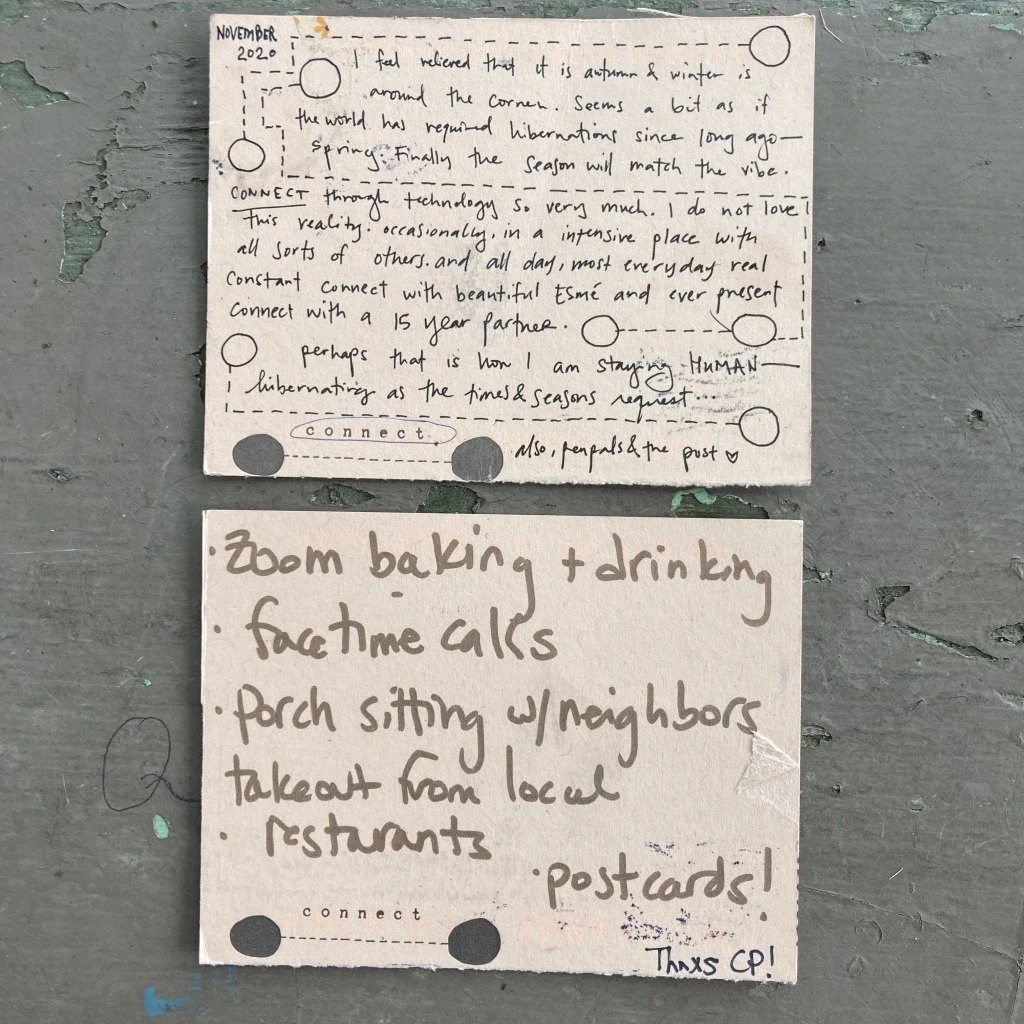 NOVEMBER
2020
I feel relieved that it is autumn & winter is
around the corner. Seems a bit as if
the world has required hibernations since long ago—
spring. Finally the season will match the vibe.
CONNECT through technology so very much. I do not love
this reality. occasionally, in a intensive place with
all sorts of others. and all day, most everyday real
constant connect with beautiful Esmé and ever present
connect with a 15 year partner.
perhaps that is how I am staying HUMAN—
hibernating as the times & seasons request...
connect.
also, penpals & the post ♡
· Zoom baking + drinking
· facetime calls
· Porch sitting w/neighbors
takeout from local
· restaurants
· postcards!
connect
Thnxs CP!
Q